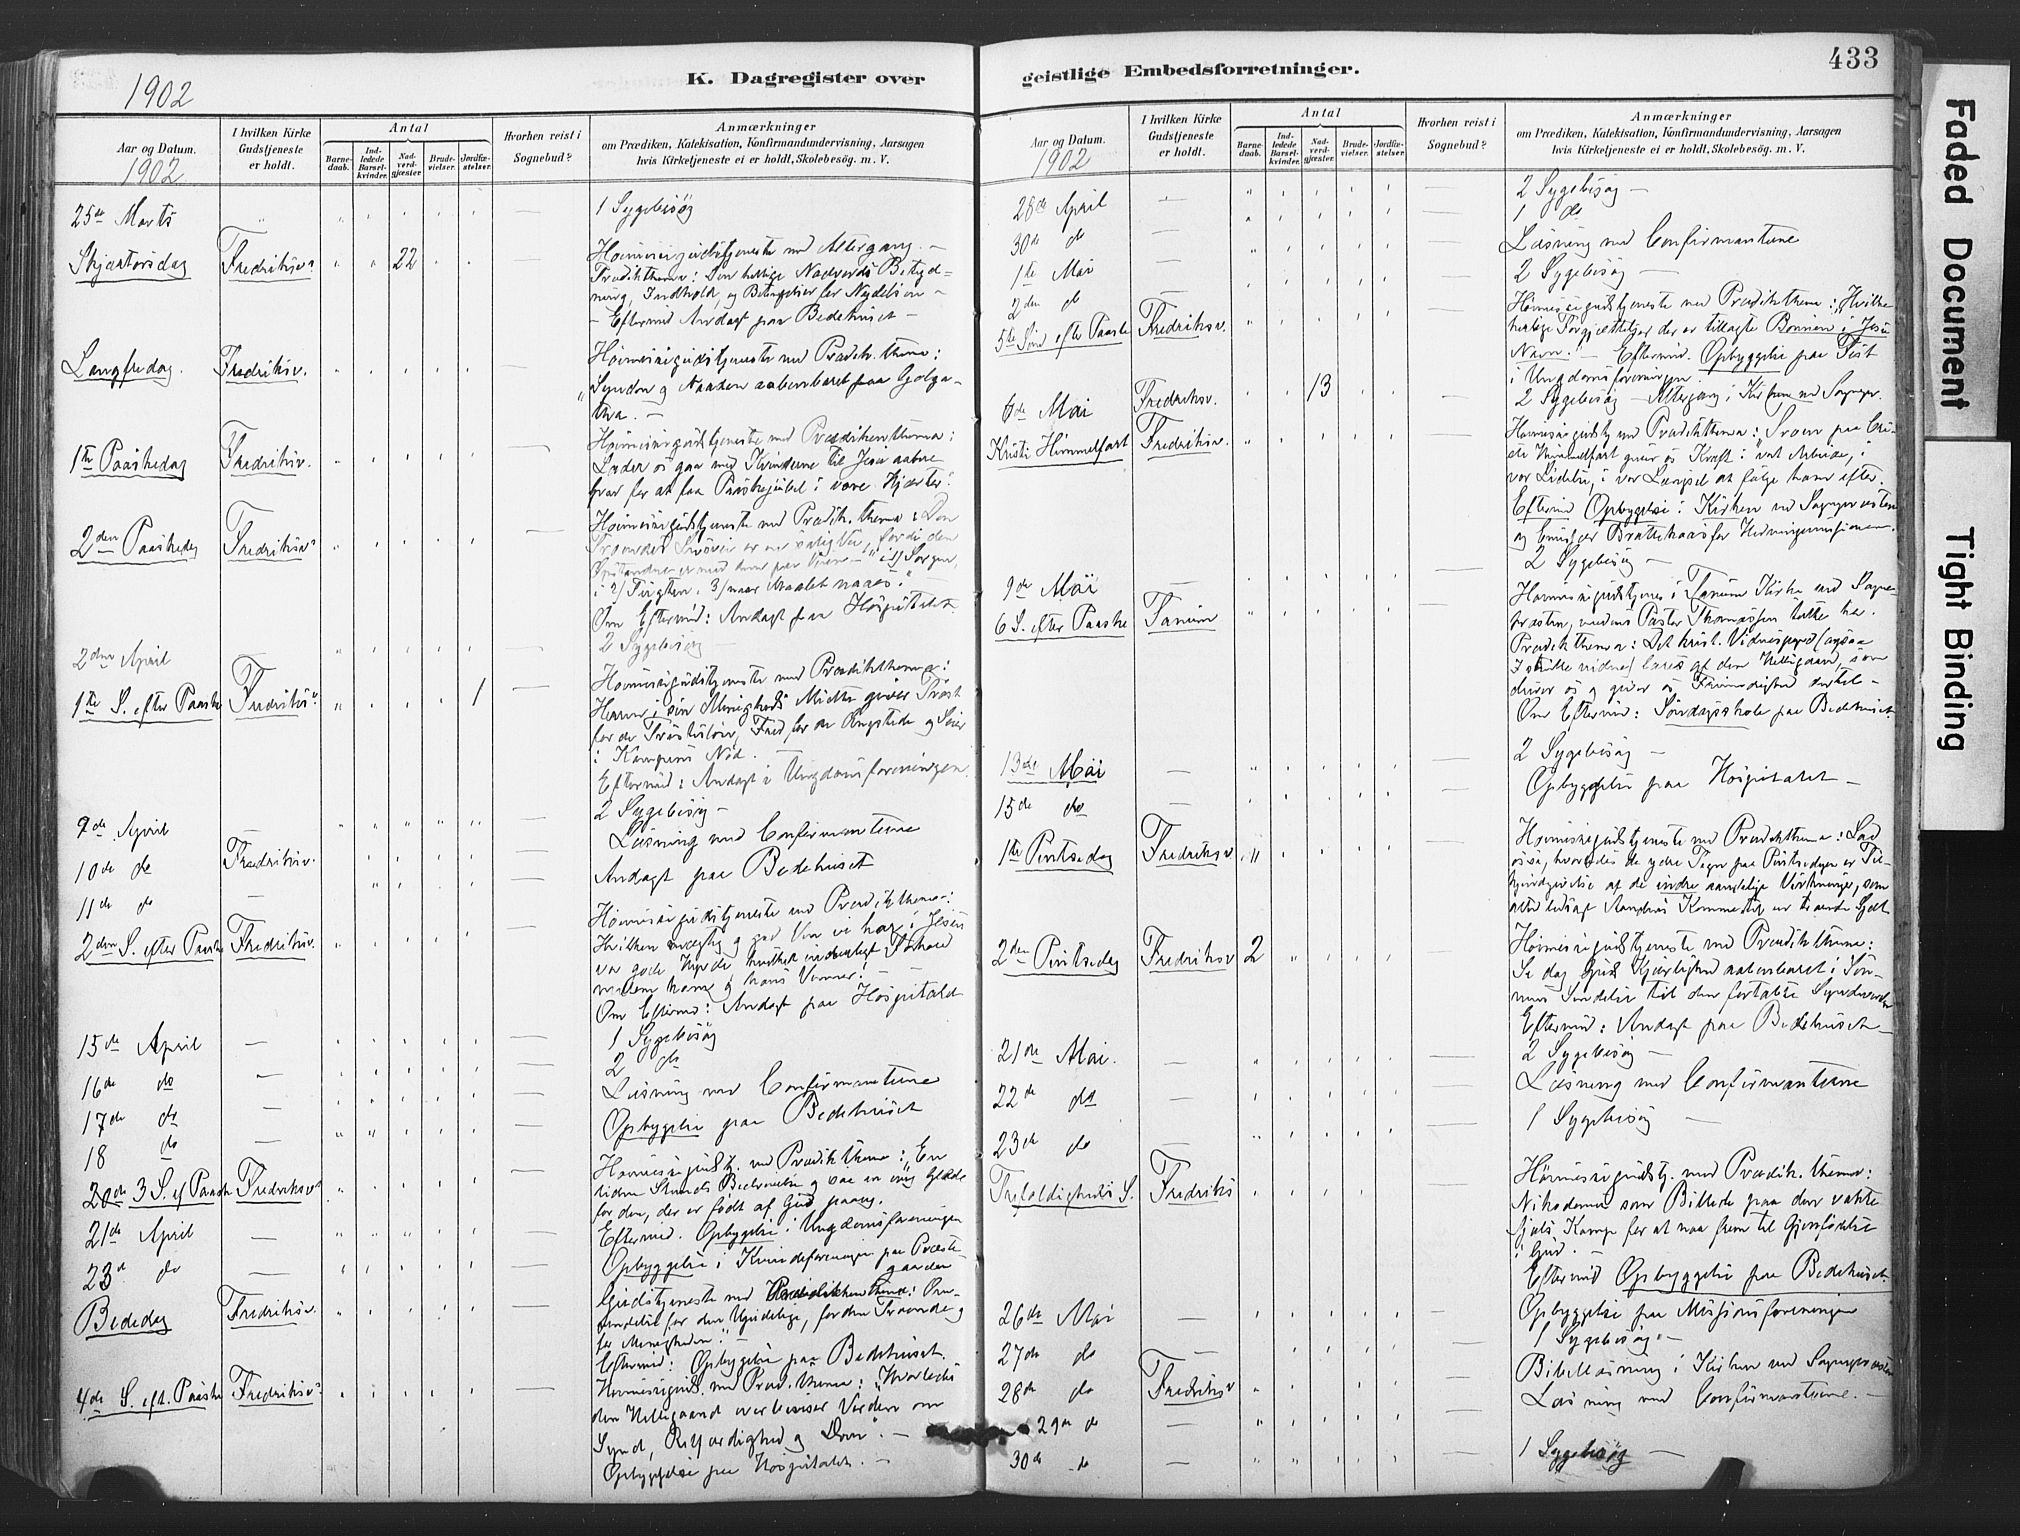 433
K. Dagregister over
geistlige Embedsforretninger.
1902
Aar og Datum.
1902
I hvilken Kirke
Gudstjeneste
er holdt.
Antal
Barne-
daab.
Ind-
ledede
Barsel-
kvinder.
Nad-
verd-
gjæster.
Brude-
vielser.
Jordfæ-
stelser.
Hvorhen reist i
Sognebud?
Anmærkninger
om Prædiken, Katekisation, Konfirmandundervisning, Aarsagen
hvis Kirketjeneste ei er holdt, Skolebesög. m. V.
25de Marts 1 Sygebesög
Skjærtorsdag Fredriksv. 22 Høimessegudstjeneste med Altergang. –
Prædikthema: Den hellige Nadverds Betyd-
ning, Indhold og Betingelser for Nydelsen –
– Eftermid Andagt paa Bedehuset –
Langfredag. Fredriksv. Høimessegudstjeneste med Prædik. thema:
Synden og Naaden aabenbaret paa Golga-
tha. –
1te Paaskedag Fredriksv. Høimessegudstjeneste med Prædikenthema:
Lader os gaa med Kvinderne til Jesu aabne
Grav for at faa Paaskejubel i vore Hjerter.
2den Paaskedag Fredriksv. Høimessegudstjeneste med Prædik. thema: Den
i 2/ Frygten, 3/ naar Maalet naaes.
Om Eftermid: Andagt paa Hospitalet
2den April 2 Sygebesög –
1te S. efter Paaske Fredriksv. 1 Høimessegudstjeneste med Prædikthema:
Herren i sin Menigheds Midte giver Trøst
for de Trøstesløse, Fred for de Ængstede og Seier
i Kampens Nød.
Eftermid: Andagt i Ungdomsforeningen.
9de April 2 Sygebesög –
10de do Fredriksv. Læsning med Confirmanterne
11de do Andagt paa Bedehuset
2den S. efter Paaske Fredriksv. Høimessegudstjeneste med Prædikthema:
Hvilken mægtig og god Ven vi har i Jesus
vor gode Hyrde, hvilket inderligt Forhold
mellem ham og hans Venner! –
Om Eftermid: Andagt paa Hospitalet
15de April 1 Sygebesög
16de do 2 do
17de do Læsning med Confirmanterne
18 do Opbyggelse paa Bedehuset
20de 3 S. ef Paaske Fredriksv. Høimessegudstj. med Prædikthema: En
liden Stunds Bedrøvelse og saa en evig Glæde
for den, der er født af Gud paany.
Eftermid. Opbyggelse i Ungdomsforeningen
21de April
23de do Opbyggelse i Kvindeforeningen paa Præste-
gaarden
Bededag Fredriksv. Gudstjeneste med Prædikenthema:
for den Ugudelige, for den Troende og
for Menigheden." –
Eftermid: Opbyggelse paa Bedehuset.
4de S. eft. Paaske Fredriksv. Høimessegudst. med Præd. thema: "Hvorledes
den Helligaand overbeviser Verden om
Synd, Retfærdighed og Dom". –
Opbyggelse paa Hospitalet. –
Aar og Datum.
1902
I hvilken Kirke
Gudstjeneste
er holdt.
Antal
Barne-
daab.
Ind-
ledede
Barsel-
kvinder.
Nad-
verd-
gjæster.
Brude-
vielser.
Jordfæ-
stelser.
Hvorhen reist i
Sognebud?
Anmærkninger
om Prædiken, Katekisation, Konfirmandundervisning, Aarsagen
hvis Kirketjeneste ei er holdt, Skolebesög. m. V.
28de April 2 Sygebesög –
30de do 1 do
1te Mai Læsning med Confirmanterne
2den do 2 Sygebesög –
5te Sønd efter Paaske Fredriksv. Høimessegudstjeneste med Prædikthema: "Hvilke
herlige Forjættelser der er tillagte Bønnen i Jesu
Navn." – Eftermid. Opbyggelse paa Fest
i Ungdomsforeningen.
6de Mai Fredriksv. 13 2 Sygebesög – Altergang i Kirken ved Sognepr.
Kristi Himmelfart Fredriksv. Høimessegudstj med Prædikthema: "Troen paa Kri-
sti Himmelfart giver os Kraft i vort Arbeide, i
vor Lidelse, i vor Længsel at følge ham efter.
Eftermid Opbyggelse i Kirken ved Sognepræsten
og Emissær Brattekaas for Hedningemissionen.
9de Mai 2 Sygebesög
6 S. efter Paaske Tanum Høimessegudstjeneste i Tanum Kirke ved Sogne-
præsten, medens Pastor Thomassen talte her.
Om Eftermid: Søndagsskole paa Bedehuset.
13de Mai 2 Sygebesög –
15de do Opbyggelse paa Hospitalet –
1te Pintsedag Fredriksv Høimessegudstjeneste med Prædikthema: Lad
os se, hvorledes de ydre Tegn paa Pintsedagen er Til-
kjendegivelse af de indre aandelige Virkninger, som
altid ledsage Aandens Kommen til en troende Sjæl
2den Pintsedag Fredriksv 2 Høimessegudstjeneste med Prædikthema:
Se dog Guds Kjærlighed aabenbaret i Søn-
nens Sendelse til den fortabte Synderverden
Eftermid: Andagt paa Bedehuset –
21de Mai. 2 Sygebesög –
22de do Læsning med Confirmanterne
23de do 1 Sygebesög –
Trefoldigheds S. Fredriks Høimessegudstj. med Prædik. thema:
Nikodemus som Billede paa den vakte
Sjæls Kamp for at naa frem til Gjenfødelse
i Gud. –
Eftermid Opbyggelse paa Bedehuset.
26de Mai Opbyggelse paa Missionsforeningen
27de do 1 Sygebesög –
28de do Fredriksv Bibellæsning i Kirken ved Sognepræsten
29de do Læsning med Confirmanterne. –
30de do 1 Sygebesög –
Faded Document
Tight Binding